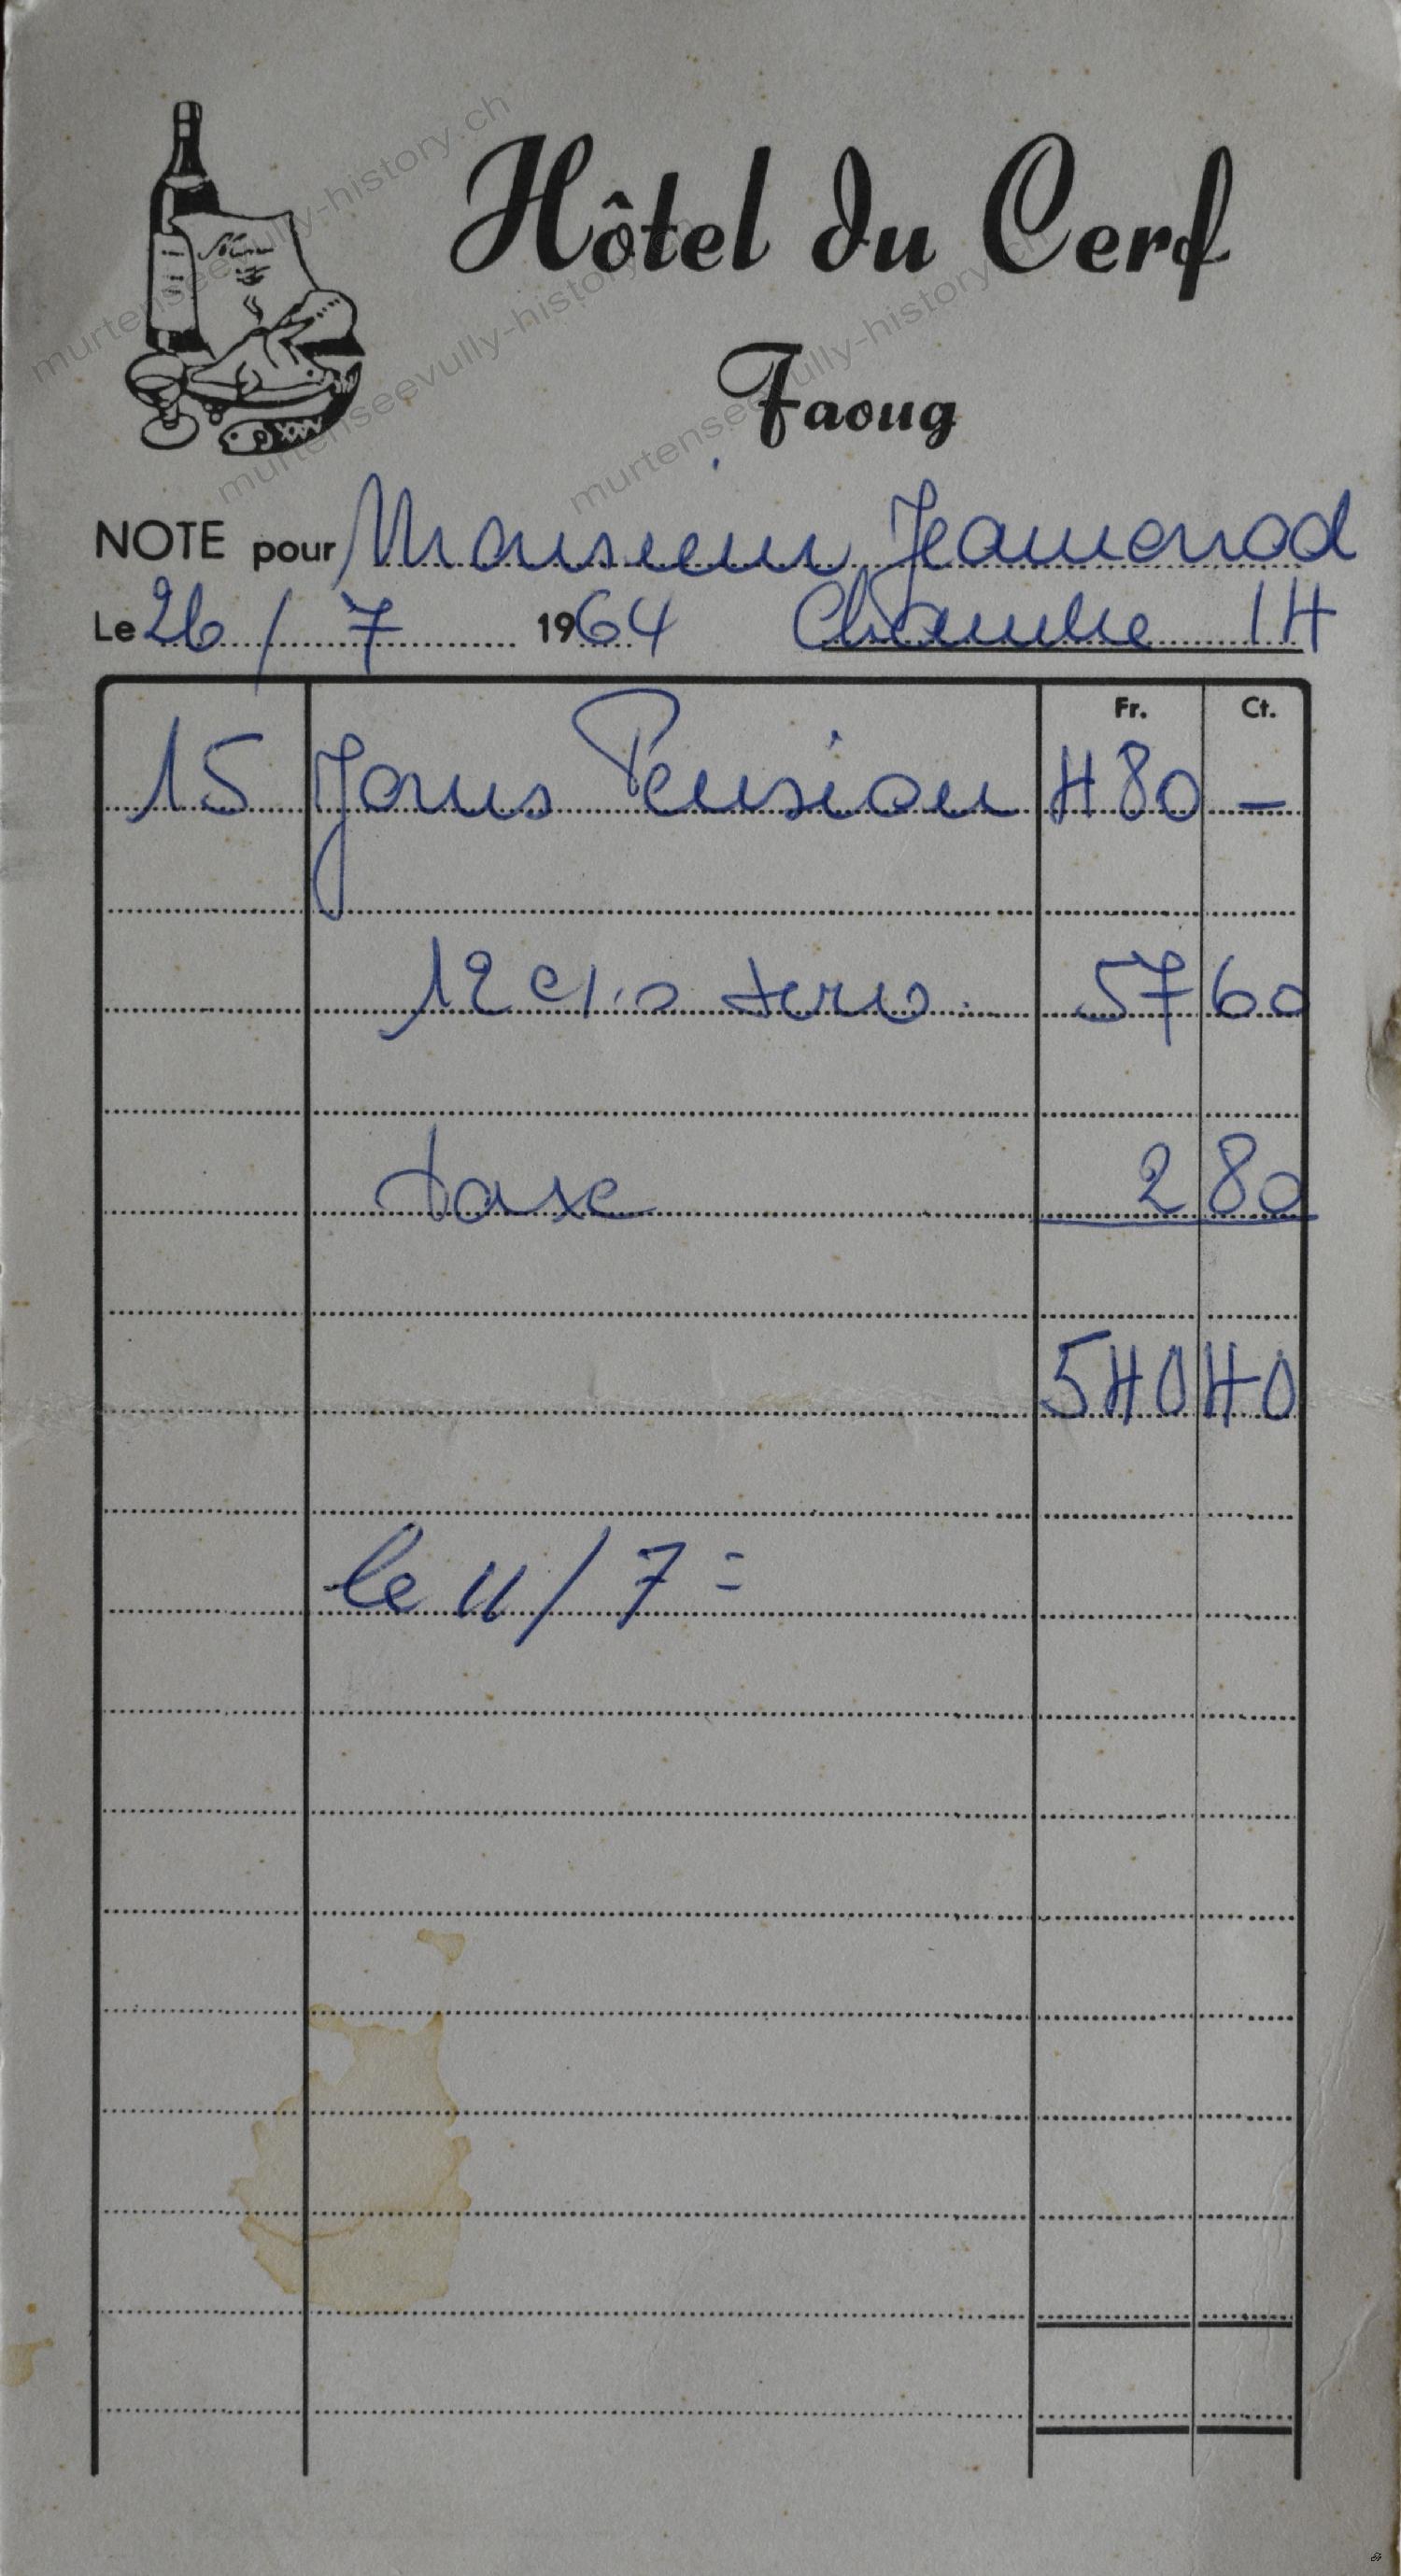 Hôtel du Cerf
Faoug
NOTE pour Monsieur Jeanmonod
Le 26 / 7 1964 Chambre 14
Fr. Ct.
15 Jours Pension 480 -
12 % serv. 57 60
taxe 2 80
540 40
le 11 / 7 =
murtenseevully-history.ch
murtenseevully-history.ch
murtenseevully-history.ch